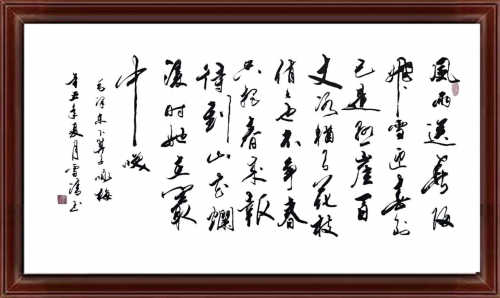 風雨送春歸
飛雪迎春到
已是悬崖百
丈冰猶有花枝
俏々也不争春
只把春来報
待到山花爛
漫時她在叢
中咲
毛泽东卜算子咏梅
辛丑年夏月雪涛书